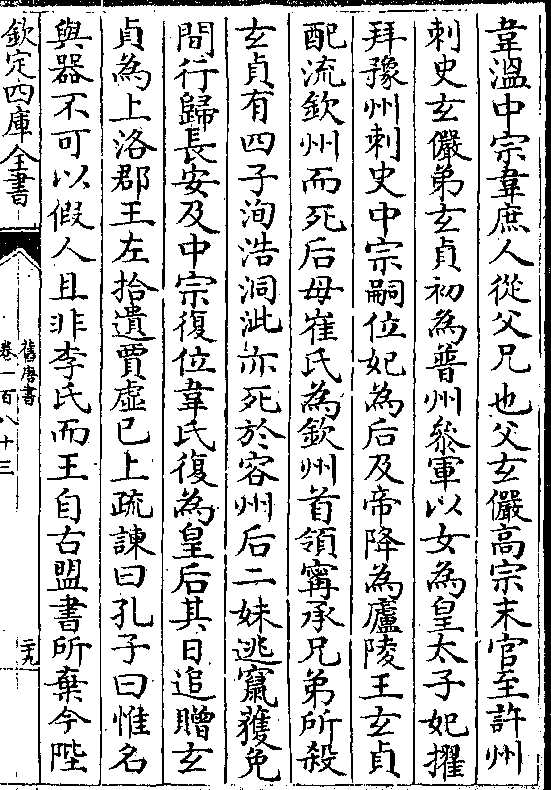 韋溫中宗韋庶人從父兄也父玄儼高宗末官至許州
刺史玄儼弟玄貞初為普州參軍以女為皇太子妃擢
拜豫州刺史中宗嗣位妃為后及帝降為廬陵王玄貞
配流欽州而死后母崔氏為欽州首領寗承兄弟所殺
玄貞有四子洵浩洞泚亦死於容州后二妹逃竄獲免
間行歸長安及中宗復位韋氏復為皇后其日追贈玄
貞為上洛郡王左拾遺賈虛已上疏諫曰孔子曰惟名
與器不可以假人且非李氏而王自古盟書所棄今陛
欽定四庫全書
舊唐書
卷一百八十三
二十九